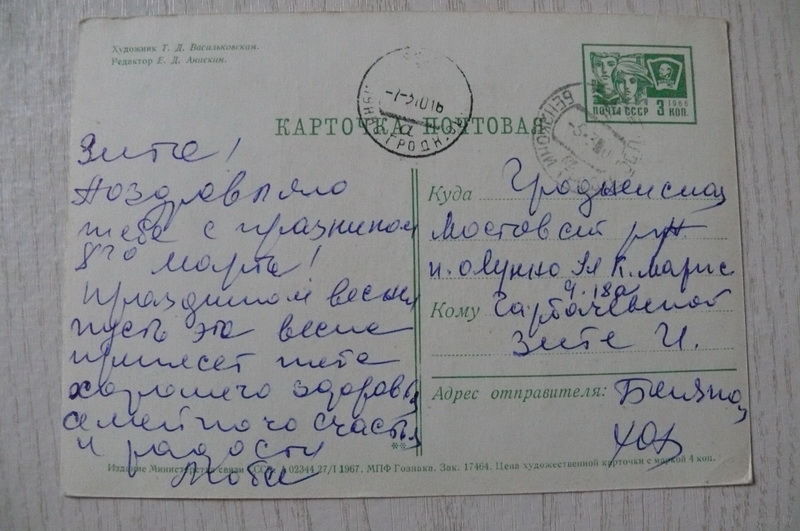 Художник Т. Д. Васильковская.
Редактор Е. Д. Анискин.
ПОЧТА СССР 1966 3 КОП.
КАРТОЧКА ПОЧТОВАЯ
Зита!
Поздравляю
тебя с празником
8го марта!
Праздником весны
пусть эта весна
принесет тебе
хорошего здоровья
семейного счастья
и радости
Люба
Куда Гродненская
Мостовский р-н
п. Лунно Ул К. Маркс
д. 18а
Кому Гарбачевской
Зите И.
Адрес отправителя:
Издание Министерства связи СССР. А 02344 27/I 1967. МПФ Гознака. Зак. 17464. Цена художественной карточки с маркой 4 коп.